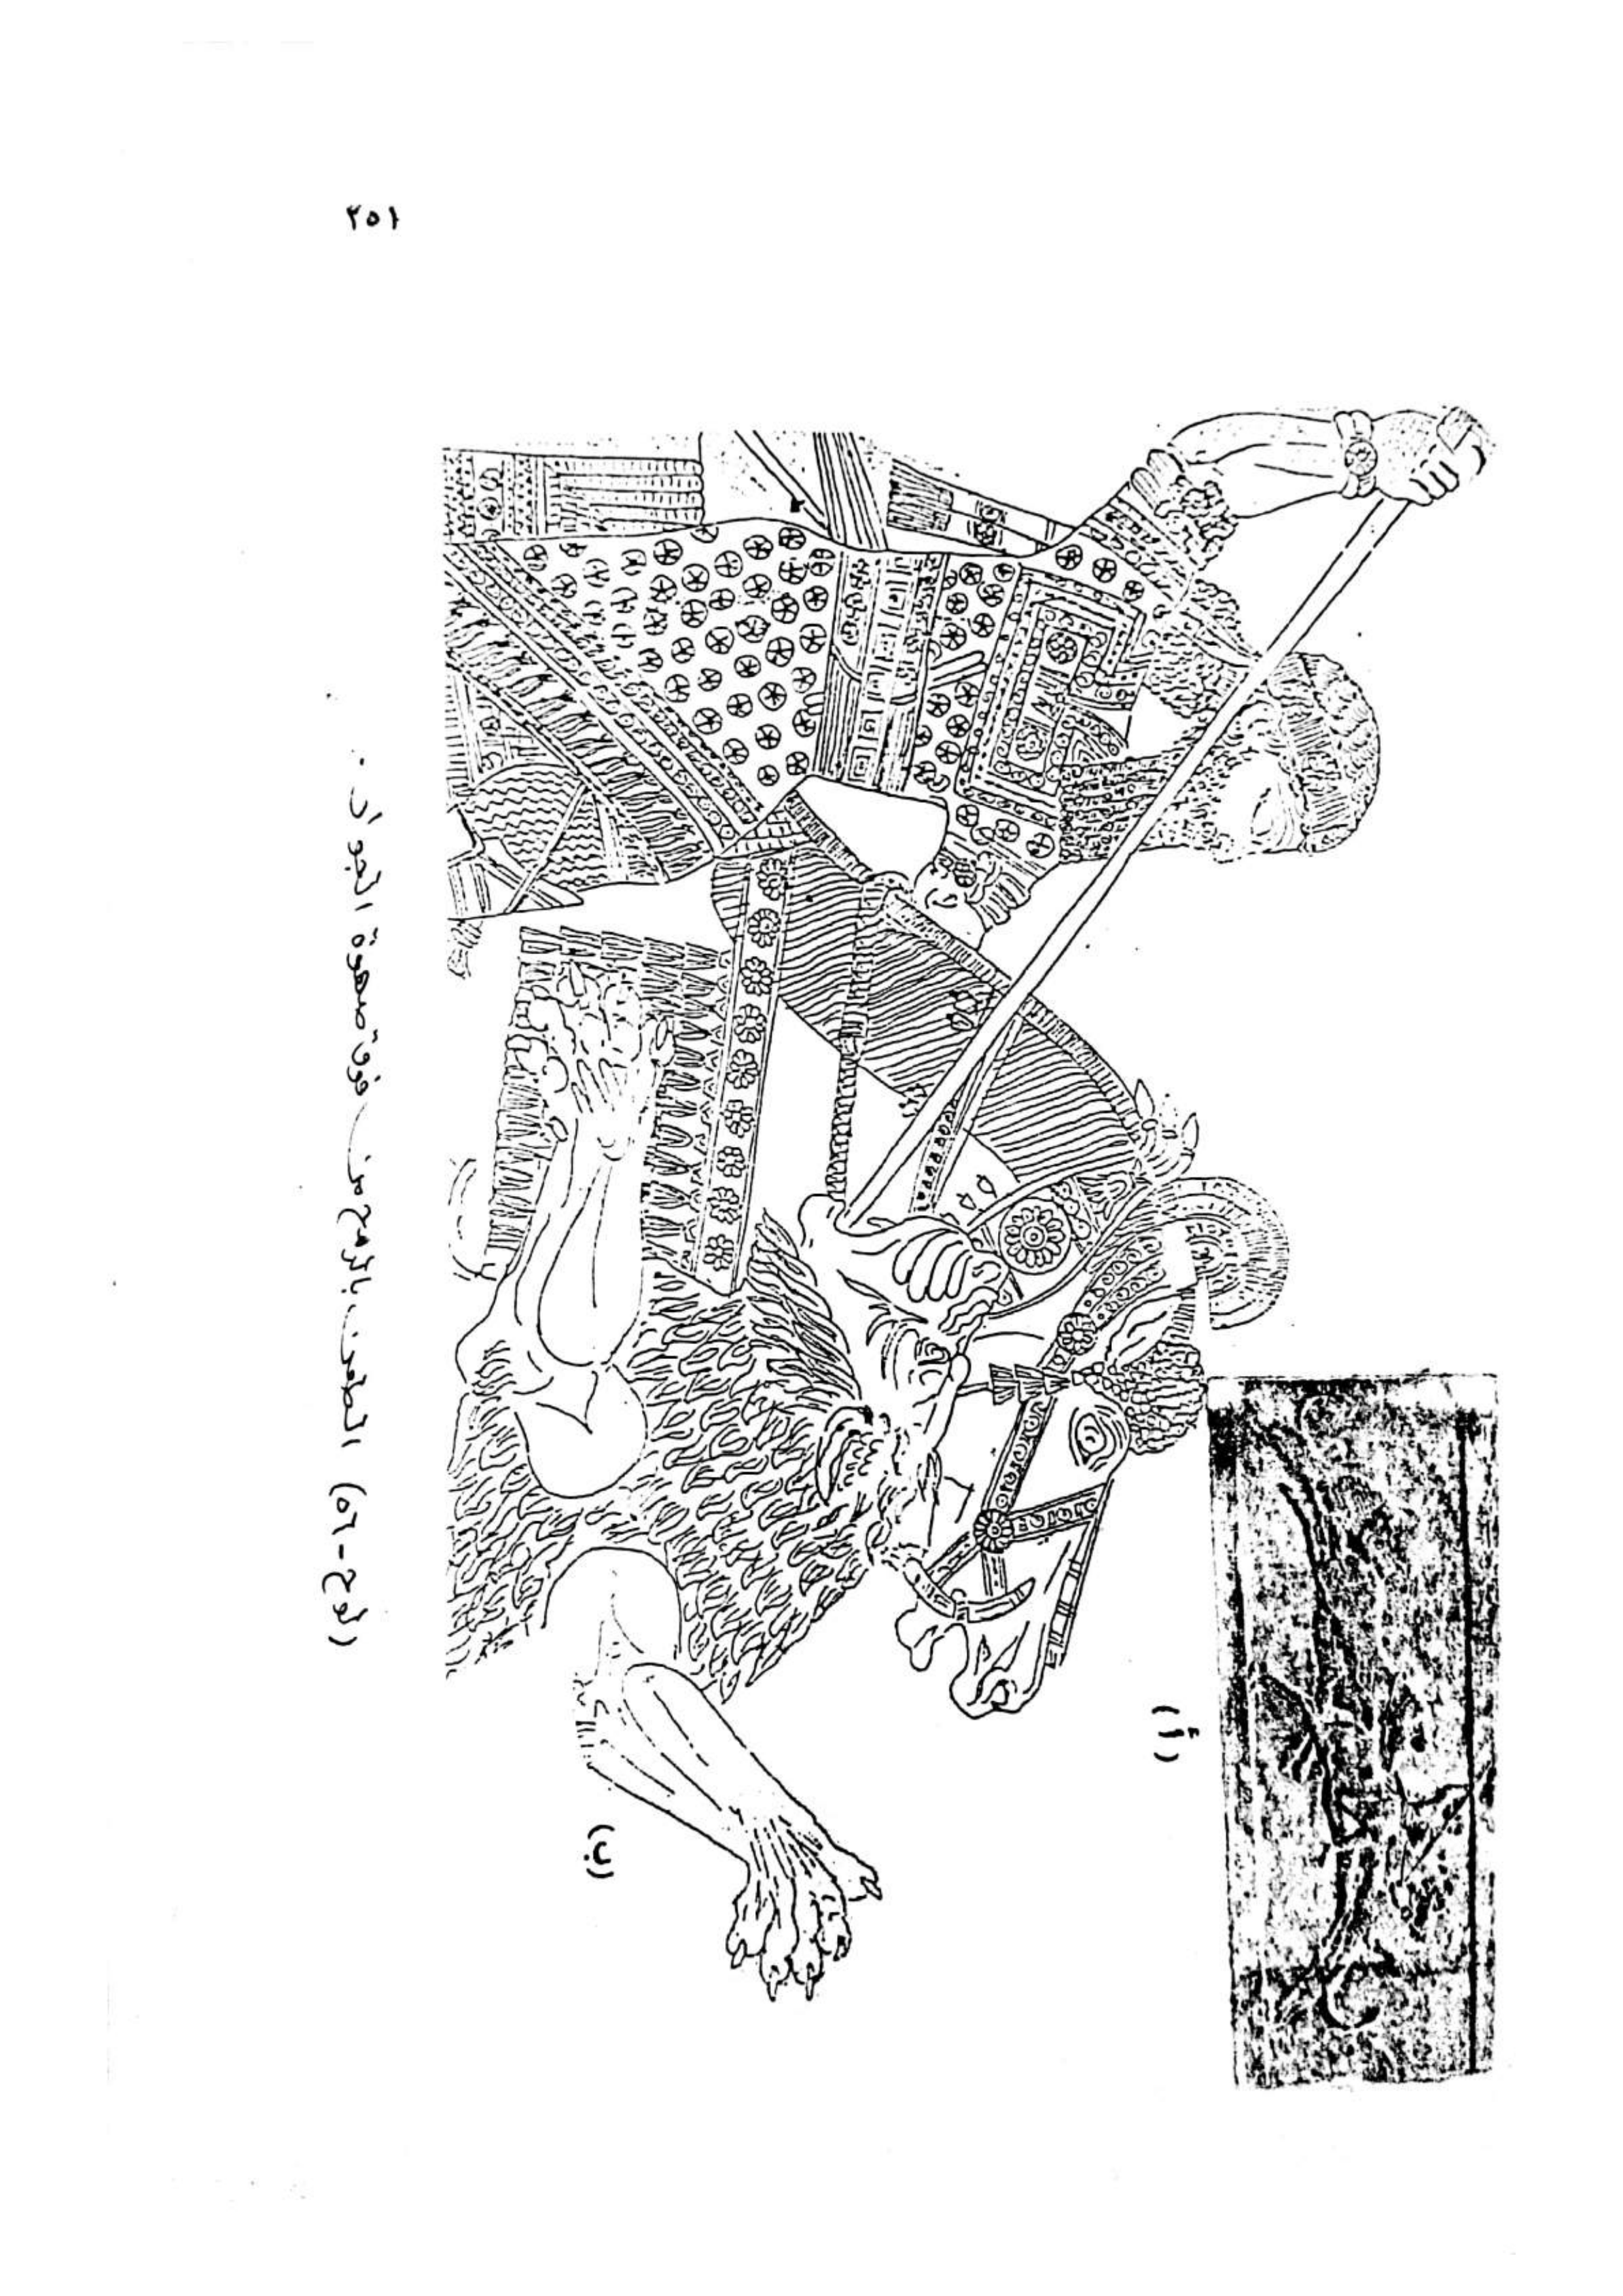 ٢٥١
(أ)
(ب)
(لوح-٥٦) الطعن بالرمح من فوق صهوة الجواد .